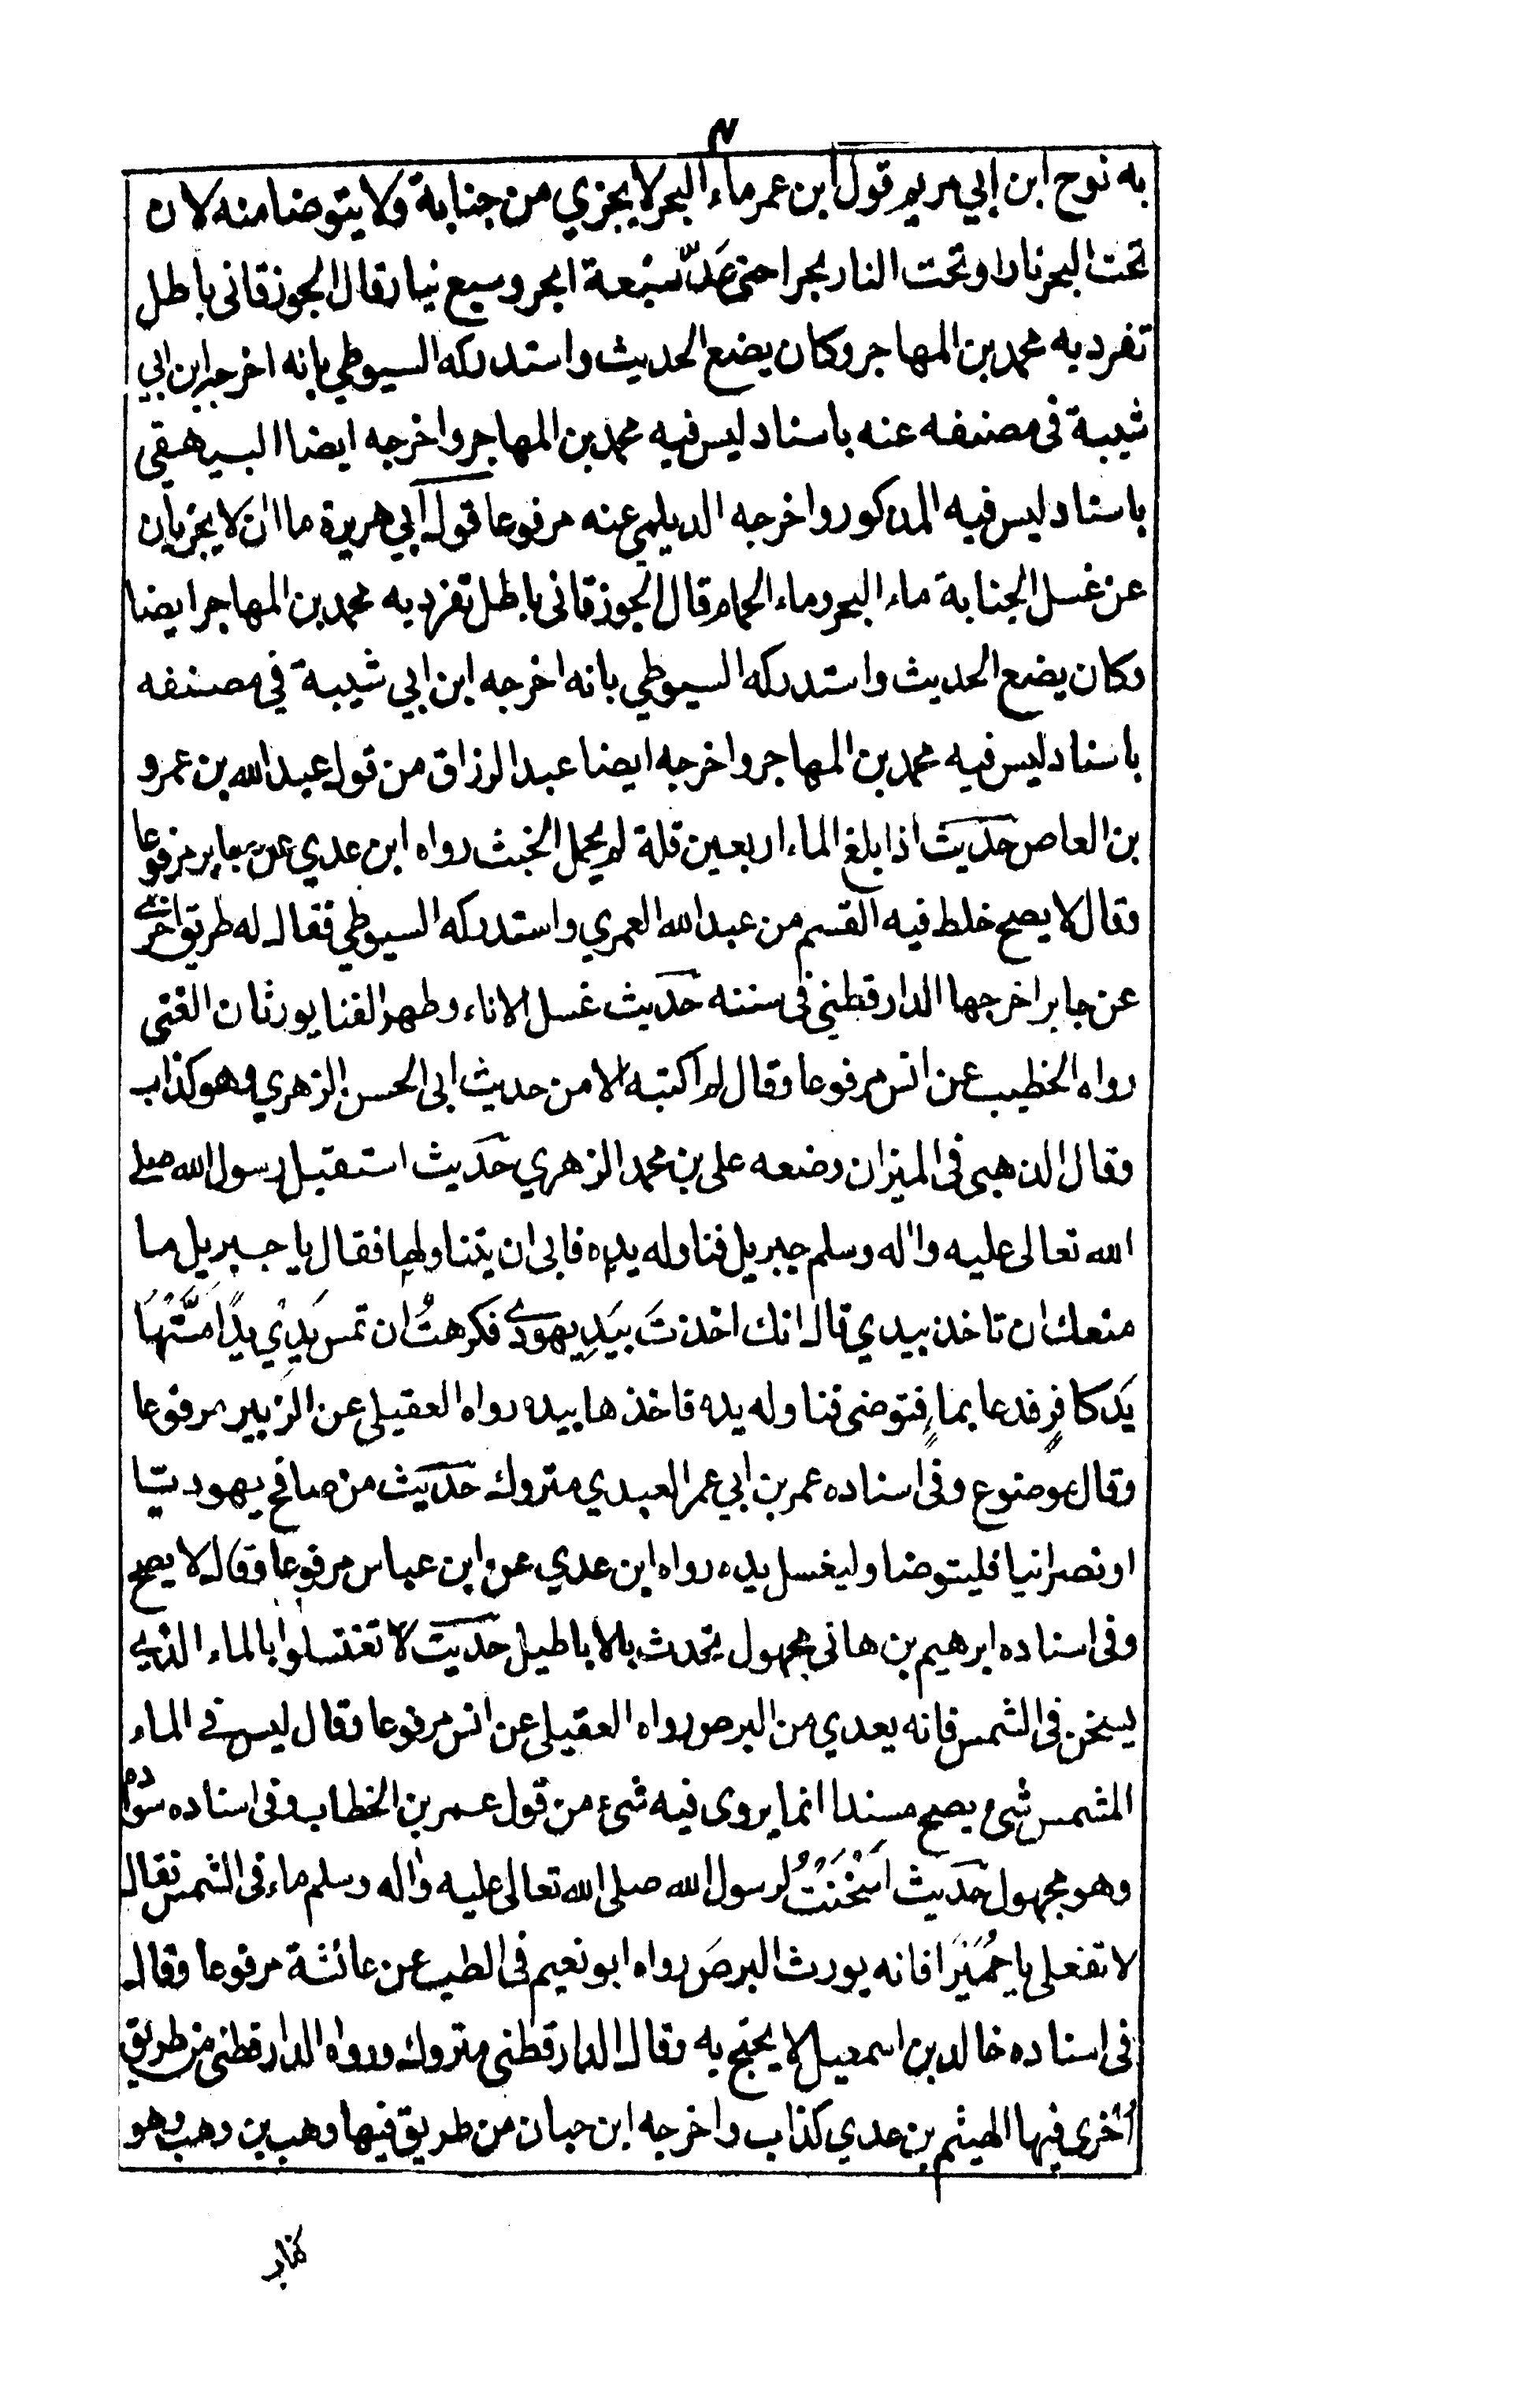 ٤
به نوح ابن ابي مريم قول ابن عمر ماء البحر لا يجزي من جنابة ولا يتوضا منه لان
تحت البحر نارا وتحت النار بحرا حتى عَدّ سَبعة ابحر وسبع نيار قال الجوزقانى باطل
تفرد به محمد بن المهاجر وكان يضع الحديث واستدركه السيوطي بانه اخرجه ابن ابي
شيبة فى مصنفه عنه باسناد ليس فيه محمد بن المهاجر واخرجه ايضا البيهقي
باسناد ليس فيه المذكور واخرجه الديلمي عنه مرفوعا قول ابي هريرة ماان لا يجزيان
عن غسل الجنابة ماء البحر وماء الحمام قال الجوزقانى باطل تفرد به محمد بن المهاجر ايضا
وكان يضع الحديث واستدركه السيوطي بانه اخرجه ابن ابي شيبة في مصنفه
باسناد ليس فيه محمد بن المهاجر واخرجه ايضا عبد الرزاق من قول عبد الله بن عمرو
بن العاص حديث اذا بلغ الماء اربعين قلة لم يحمل الخبث رواه ابن عدي عن جابر مرفوعا
وقال لا يصح خلط فيه القسم من عبد الله العمري واستدركه السيوطي فقال له طريق اخرى
عن جابر اخرجها الدارقطني فى سننه حديث غسل الاناء وطهر الفنا يورثان الغنى
رواه الخطيب عن انس مرفوعا وقال لم اكتبه الا من حديث ابى الحسن الزهري وهو كذاب
وقال الذهبى فى الميزان وضعه على بن محمد الزهري حديث استقبل رسول الله صلے
الله تعالى عليه واٰله وسلم جبريل فناوله يده فابى ان يتناولها فقال يا جبريل ما
منعك ان تاخذ بيدي قال انك اخذتَ بيَدِ يهودى فكرهتُ ان تمس يَدِيْ يدًا مَسَّتْهَا
يَد كافرٍ فدعا بماءٍ فتوضى فناوله يده فاخذها بيده رواه العقيلى عن الزبير مرفوعا
وقال موضوع وفى اسناده عمر بن ابي عمر العبدي متروك حديث من صافح يهوديّا
او نصرانيا فليتوضا وليغسل يده رواه ابن عدي عن ابن عباس مرفوعا وقال لا يصح
وفى اسناده ابرهيم بن هانى مجهول يتحدث بالاباطيل حديث لا تغتسلوا بالماء الذي
يسخن فى الشمس فانه يعدي من البرص رواه العقيلى عن انس مرفوعا وقال ليس فے الماء
المشمس شئ يصح مسندا انما يروى فيه شئ من قول عمر بن الخطاب وفى اسناده سوادة
وهو مجهول حديث اَسْخَنْتُ لرسول الله صلى الله تعالى عليه واٰله وسلم ماء فى الشمس فقال
لا تفعلى يا حُمَيْرَا فانه يورث البرصَ رواه ابو نعيم فى الطب عن عائشة مرفوعا وقال
فى اسناده خالد بن اسمعيل لا يحتج به وقال الدارقطنى متروك ورواه الدارقطنى من طريق
اُخرى فيها الهيثم بن عدي كذاب واخرجه ابن حبان من طريق فيها وهب بن وهب وهو